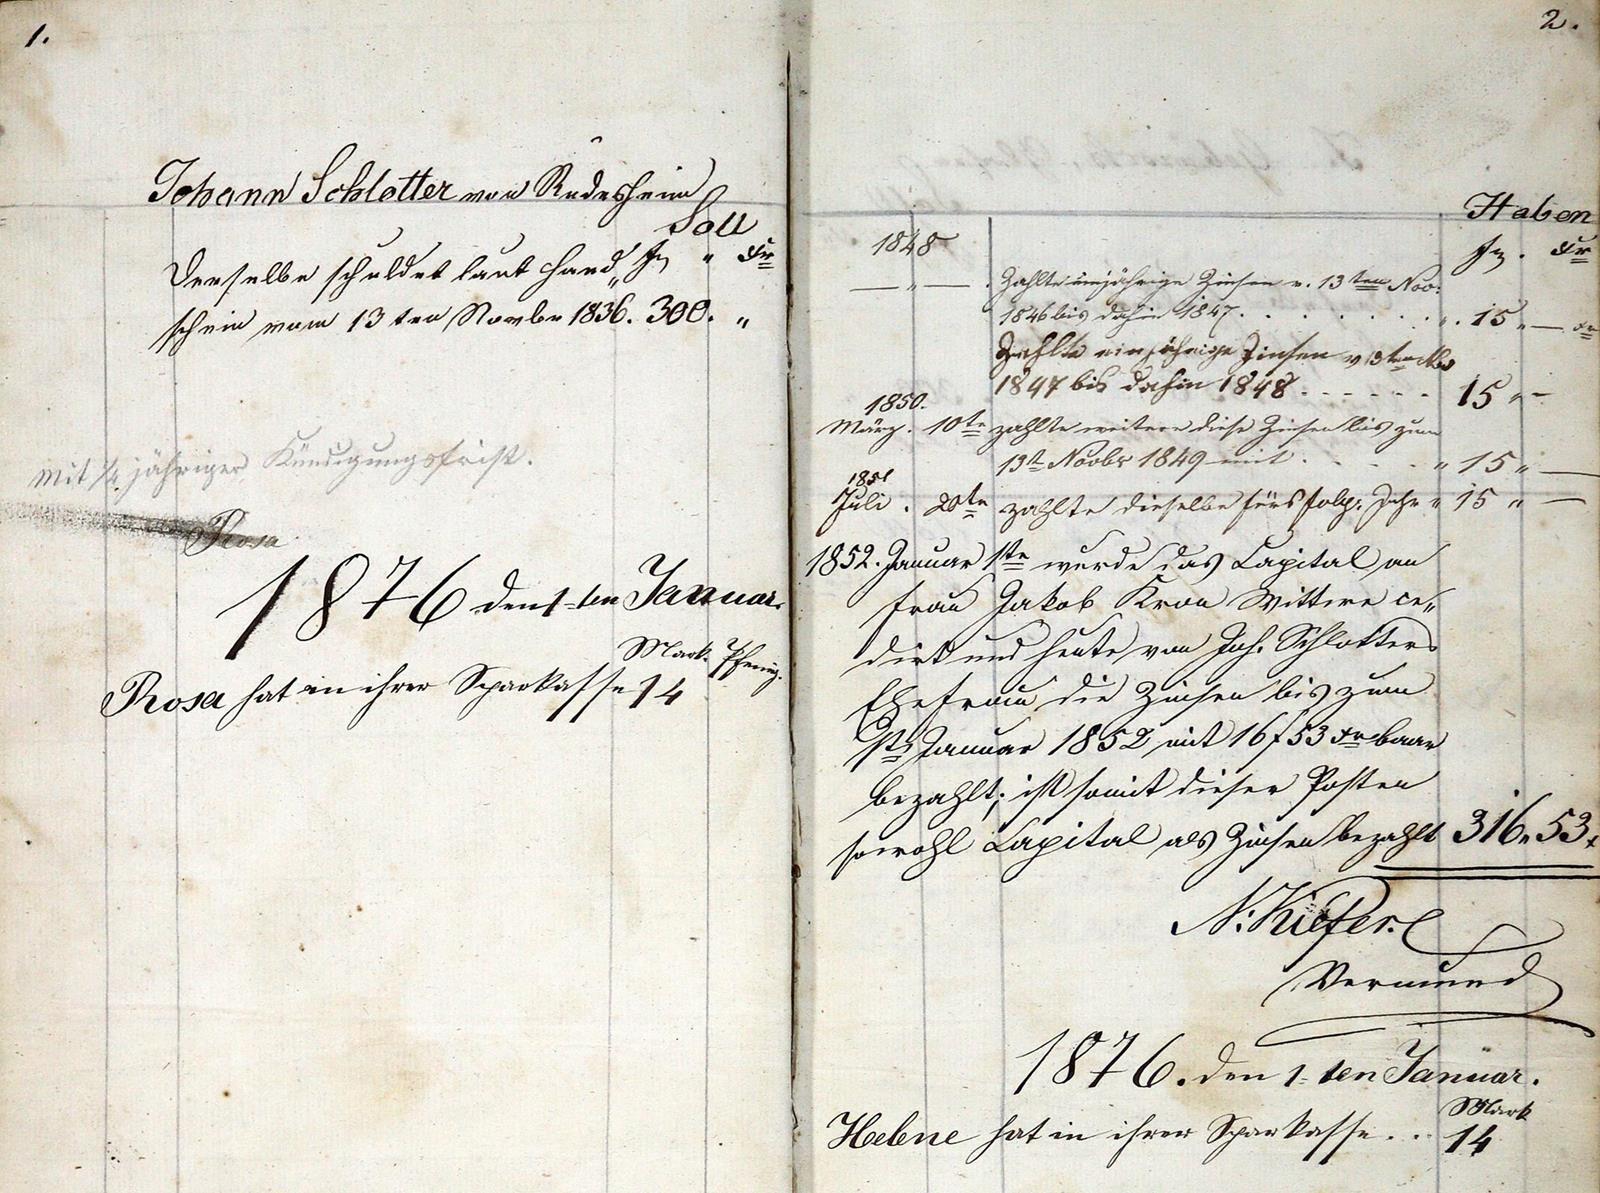 1.
Johann Schlotter von Rüdesheim
Soll
Derselbe schuldet laut Hand„ fl " Xr
schein vom 13ten Novbr 1836. 300. "
mit 1/4 jähriger Kündigungsfrist.
Rosa
1876 den 1-ten Januar.
Mark. Pfennig.
Rosa hat in ihrer Sparkasse 14
2.
Haben
1848 fl . Xr
— " — . Zahlte einjährige Zinsen v. 13ten Nov:
1846 bis dahin 1847. . . . . . . . ". 15 " — Xr
Zahlte einjährige Zinsen v 13ten Nov
1847 bis dahin 1848 . . . . . . 15 " –
1850.
März. 10te zahlte weitere diese Zinsen bis zum
13t Novbr 1849 mit . . . . " 15 " —
1851
Juli . 20te zahlte dieselbe fürs folg: Jahr " 15 " —
1852. Januar 1te wurde das Capital an
Frau Jakob Kron Wittwe ce„
dirt und heute von Joh. Schlotters
Ehefrau die Zinsen bis zum
1t Januar 1852 mit 16 f 53 Xr baar
bezahlt; ist somit dieser Posten
sowohl Capital als Zinsen bezahlt 316 " 53 x
N: Kiefer.
Vormund
1876. den 1-ten Januar.
Mark
Helene hat in ihrer Sparkasse . . . 14